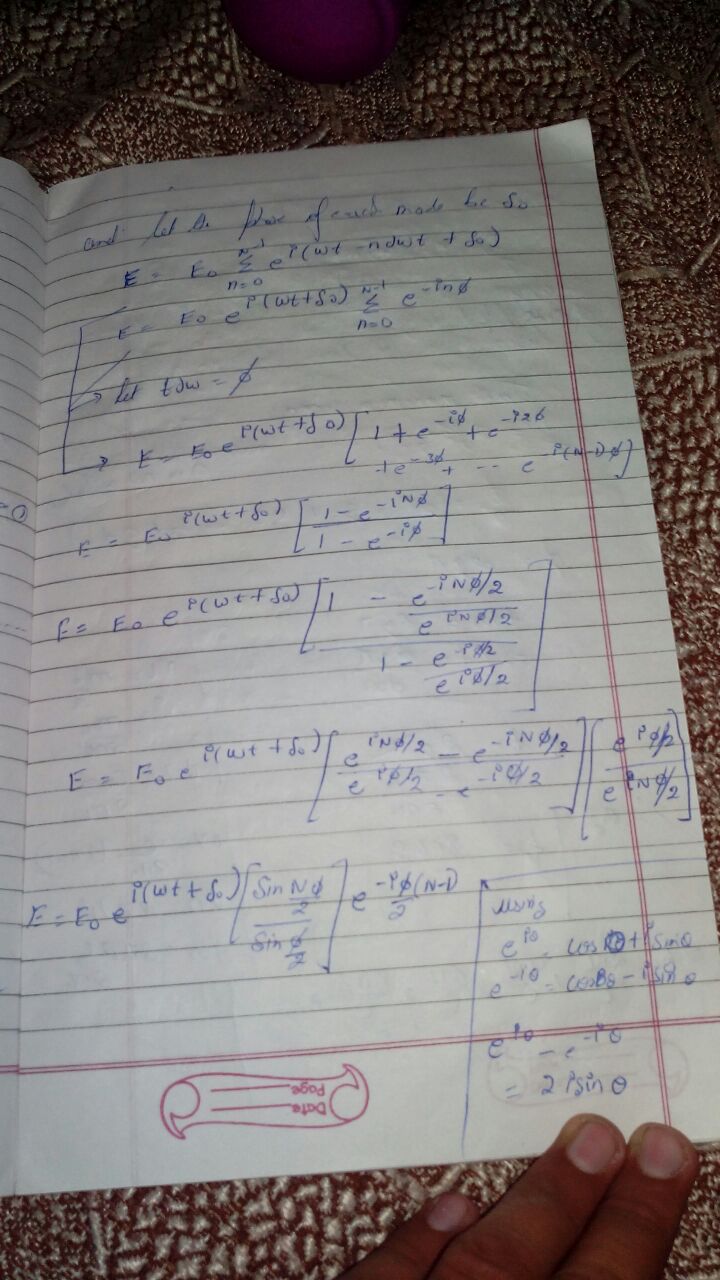 and let the phase of each mode be δ₀
E = E₀ Σ_{n=0}^{N-1} e^{i(ωt - nδωt + δ₀)}
E = E₀ e^{i(ωt+δ₀)} Σ_{n=0}^{N-1} e^{-inφ}
→ let tδω = φ
→ E = E₀ e^{i(ωt+δ₀)} [1 + e^{-iφ} + e^{-i2φ}
+ e^{-3φ} + --- e^{-i(N-1)φ}]
E = E₀^{i(ωt+δ₀)} [(1 - e^{-iNφ}) / (1 - e^{-iφ})]
E = E₀ e^{i(ωt+δ₀)} [(1 - e^{-iNφ/2} / e^{iNφ/2}) / (1 - e^{-iφ/2} / e^{iφ/2})]
E = E₀ e^{i(ωt+δ₀)} [(e^{iNφ/2} - e^{-iNφ/2}) / (e^{iφ/2} - e^{-iφ/2})] [e^{iφ/2} / e^{iNφ/2}]
E = E₀ e^{i(ωt+δ₀)} [sin Nφ/2 / sin φ/2] e^{-iφ/2 (N-1)}
using
e^{iθ} = cosθ + i sinθ
e^{-iθ} = cosθ - i sin θ
e^{iθ} - e^{-iθ}
= 2 i sin θ
Date
Page